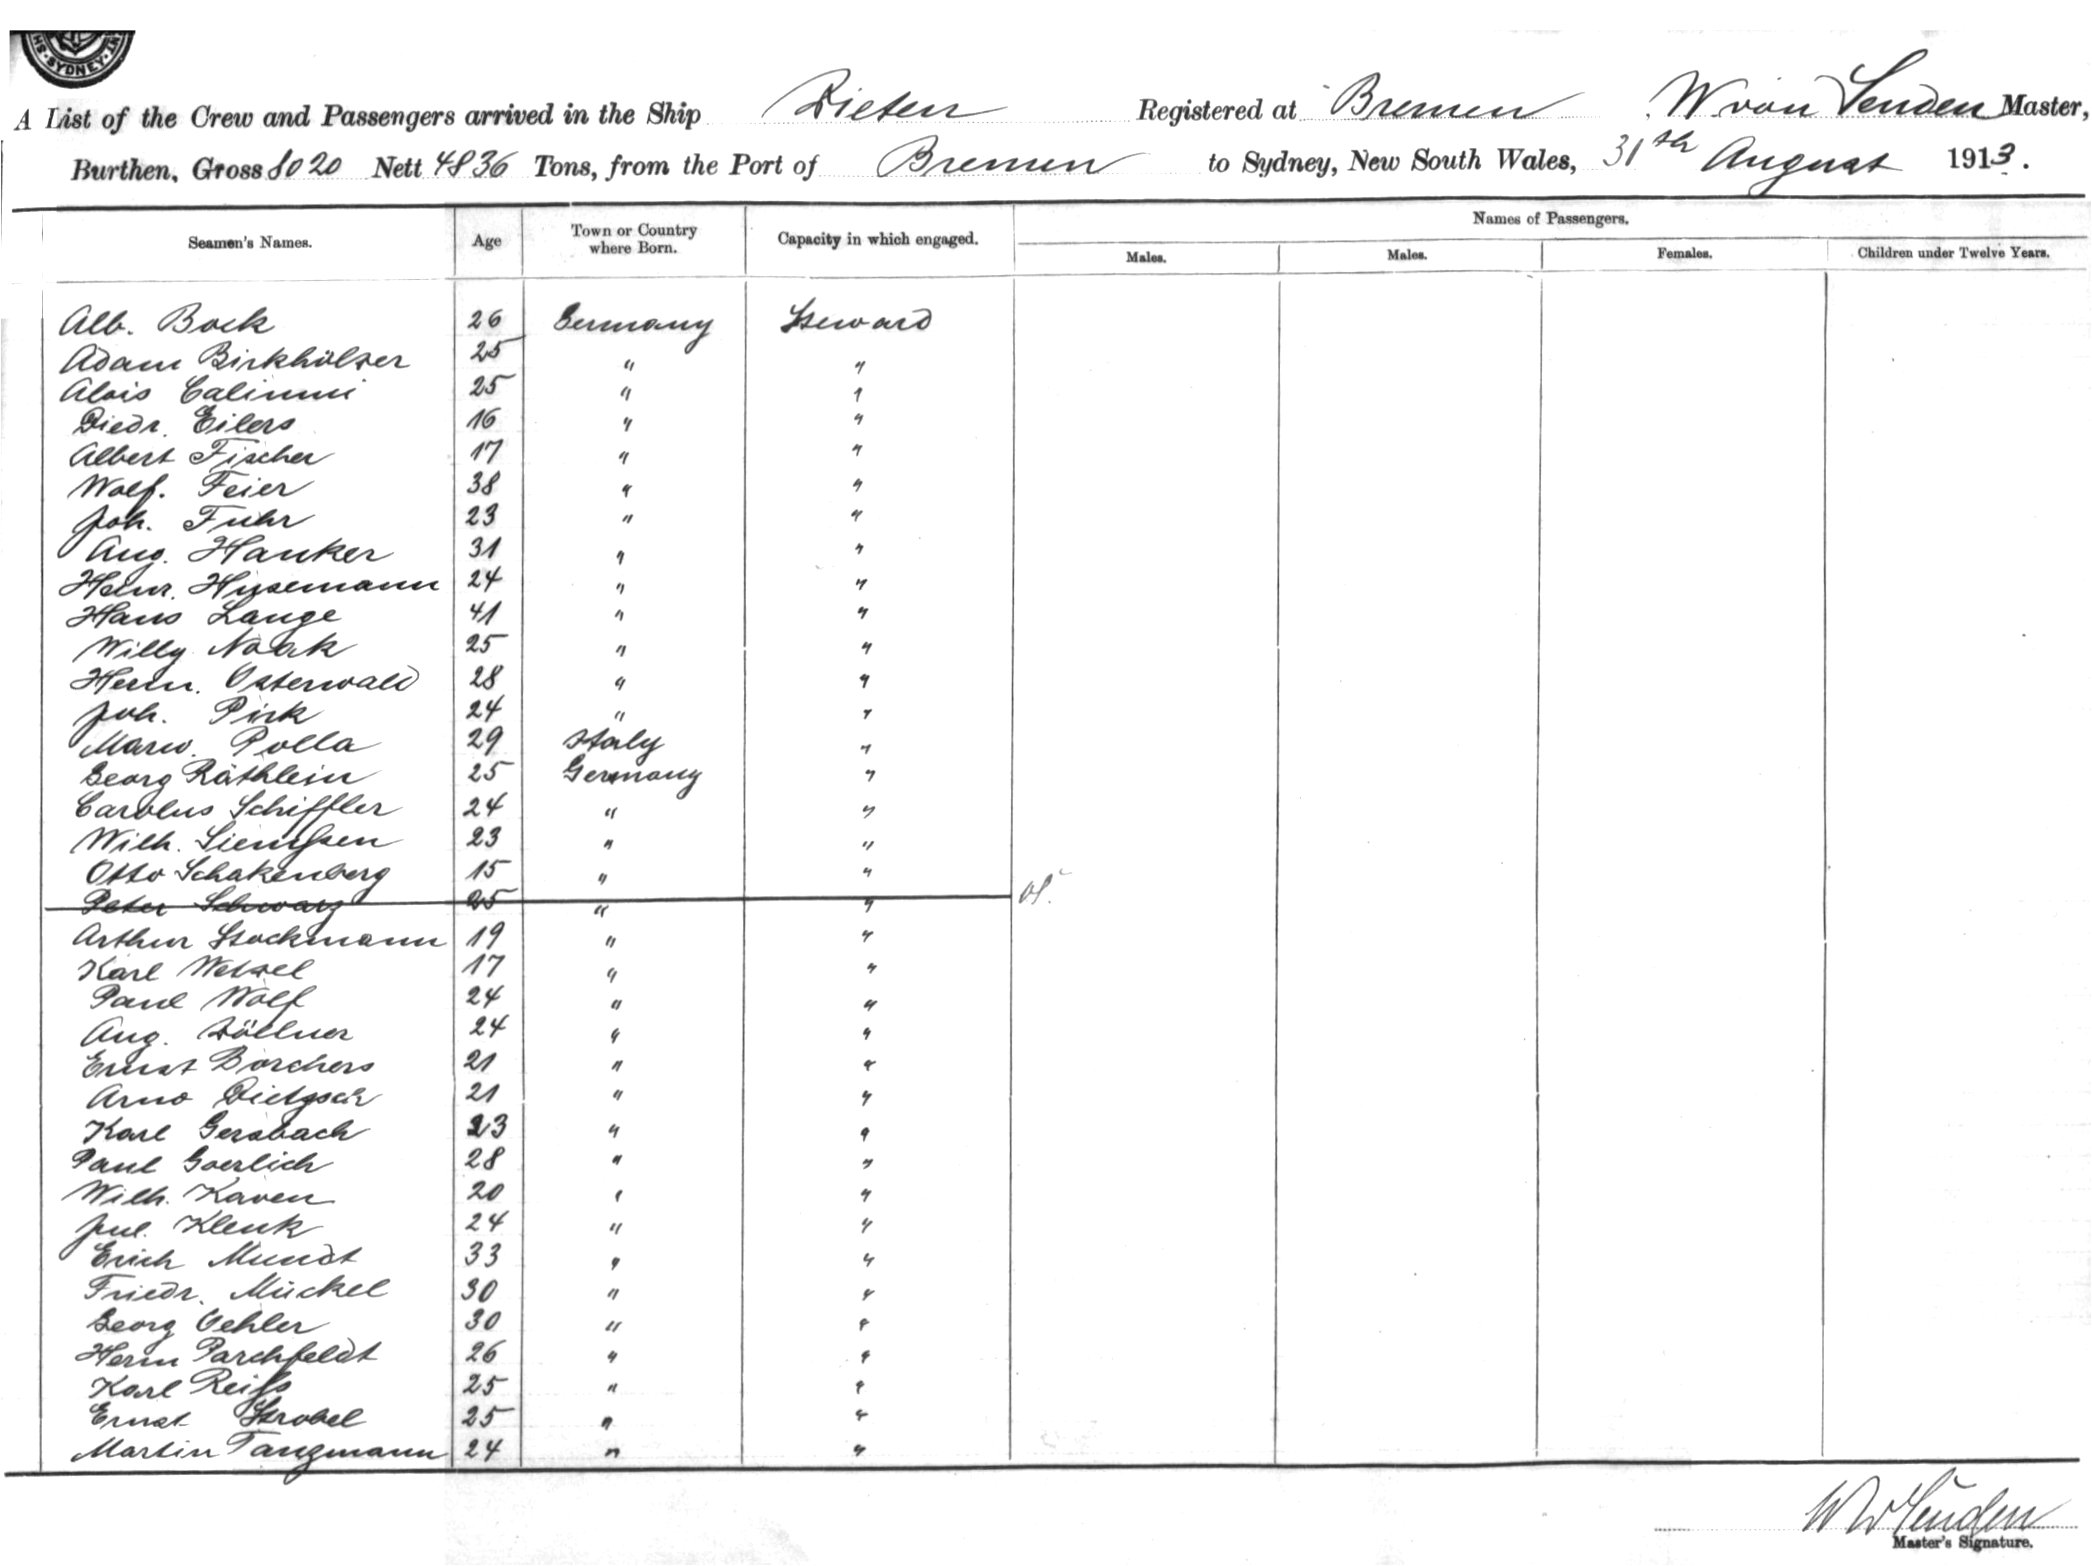 SYDNEY
A List of the Crew and Passengers arrived in the Ship Zieten Registered at Bremen W von Senden Master,
Burthen, Gross 8020 Nett 4836 Tons, from the Port of Bremen to Sydney, New South Wales, 31th August 1913.
Seamen's Names. Age Town or Country where Born. Capacity in which engaged. Names of Passengers.
Males. Males. Females. Children under Twelve Years.
Alb. Bock 26 Germany Steward
Adam Birkhölzer 25 " "
Alois 25 " "
Diedr. Eilers 16 " "
Albert Fischer 17 " "
Wolf. Feier 38 " "
Joh. Fuhr 23 " "
Aug. Hanker 31 " "
Heinr. Husemann 24 " "
Hans Lange 41 " "
Willy Noak 25 " "
Herm. Osterwald 28 " "
Joh. Pirk 24 " "
Mario. Polla 29 Italy "
Georg Räthlein 25 Germany "
Carolus Schiffler 24 " "
Wilh. Siemssen 23 " "
Otto Schakenberg 15 " "
Peter Schwarz 25 " "
Arthur Stockmann 19 " "
Karl Wetzel 17 " "
Paul Wolf 24 " "
Aug. Zöllner 24 " "
Ernst Borchers 21 " "
Arno Dietzsch 21 " "
Karl Gersbach 23 " "
Paul Goerlich 28 " "
Wilh. Kaven 20 " "
Jul. Klenk 24 " "
Erich Mundt 33 " "
Friedr. Mückel 30 " "
Georg Oehler 30 " "
Herm Parchfeldt 26 " "
Karl Reiß 25 " "
Ernst Strobel 25 " "
Martin Tanzmann 24 " "
W v Senden
Master's Signature.